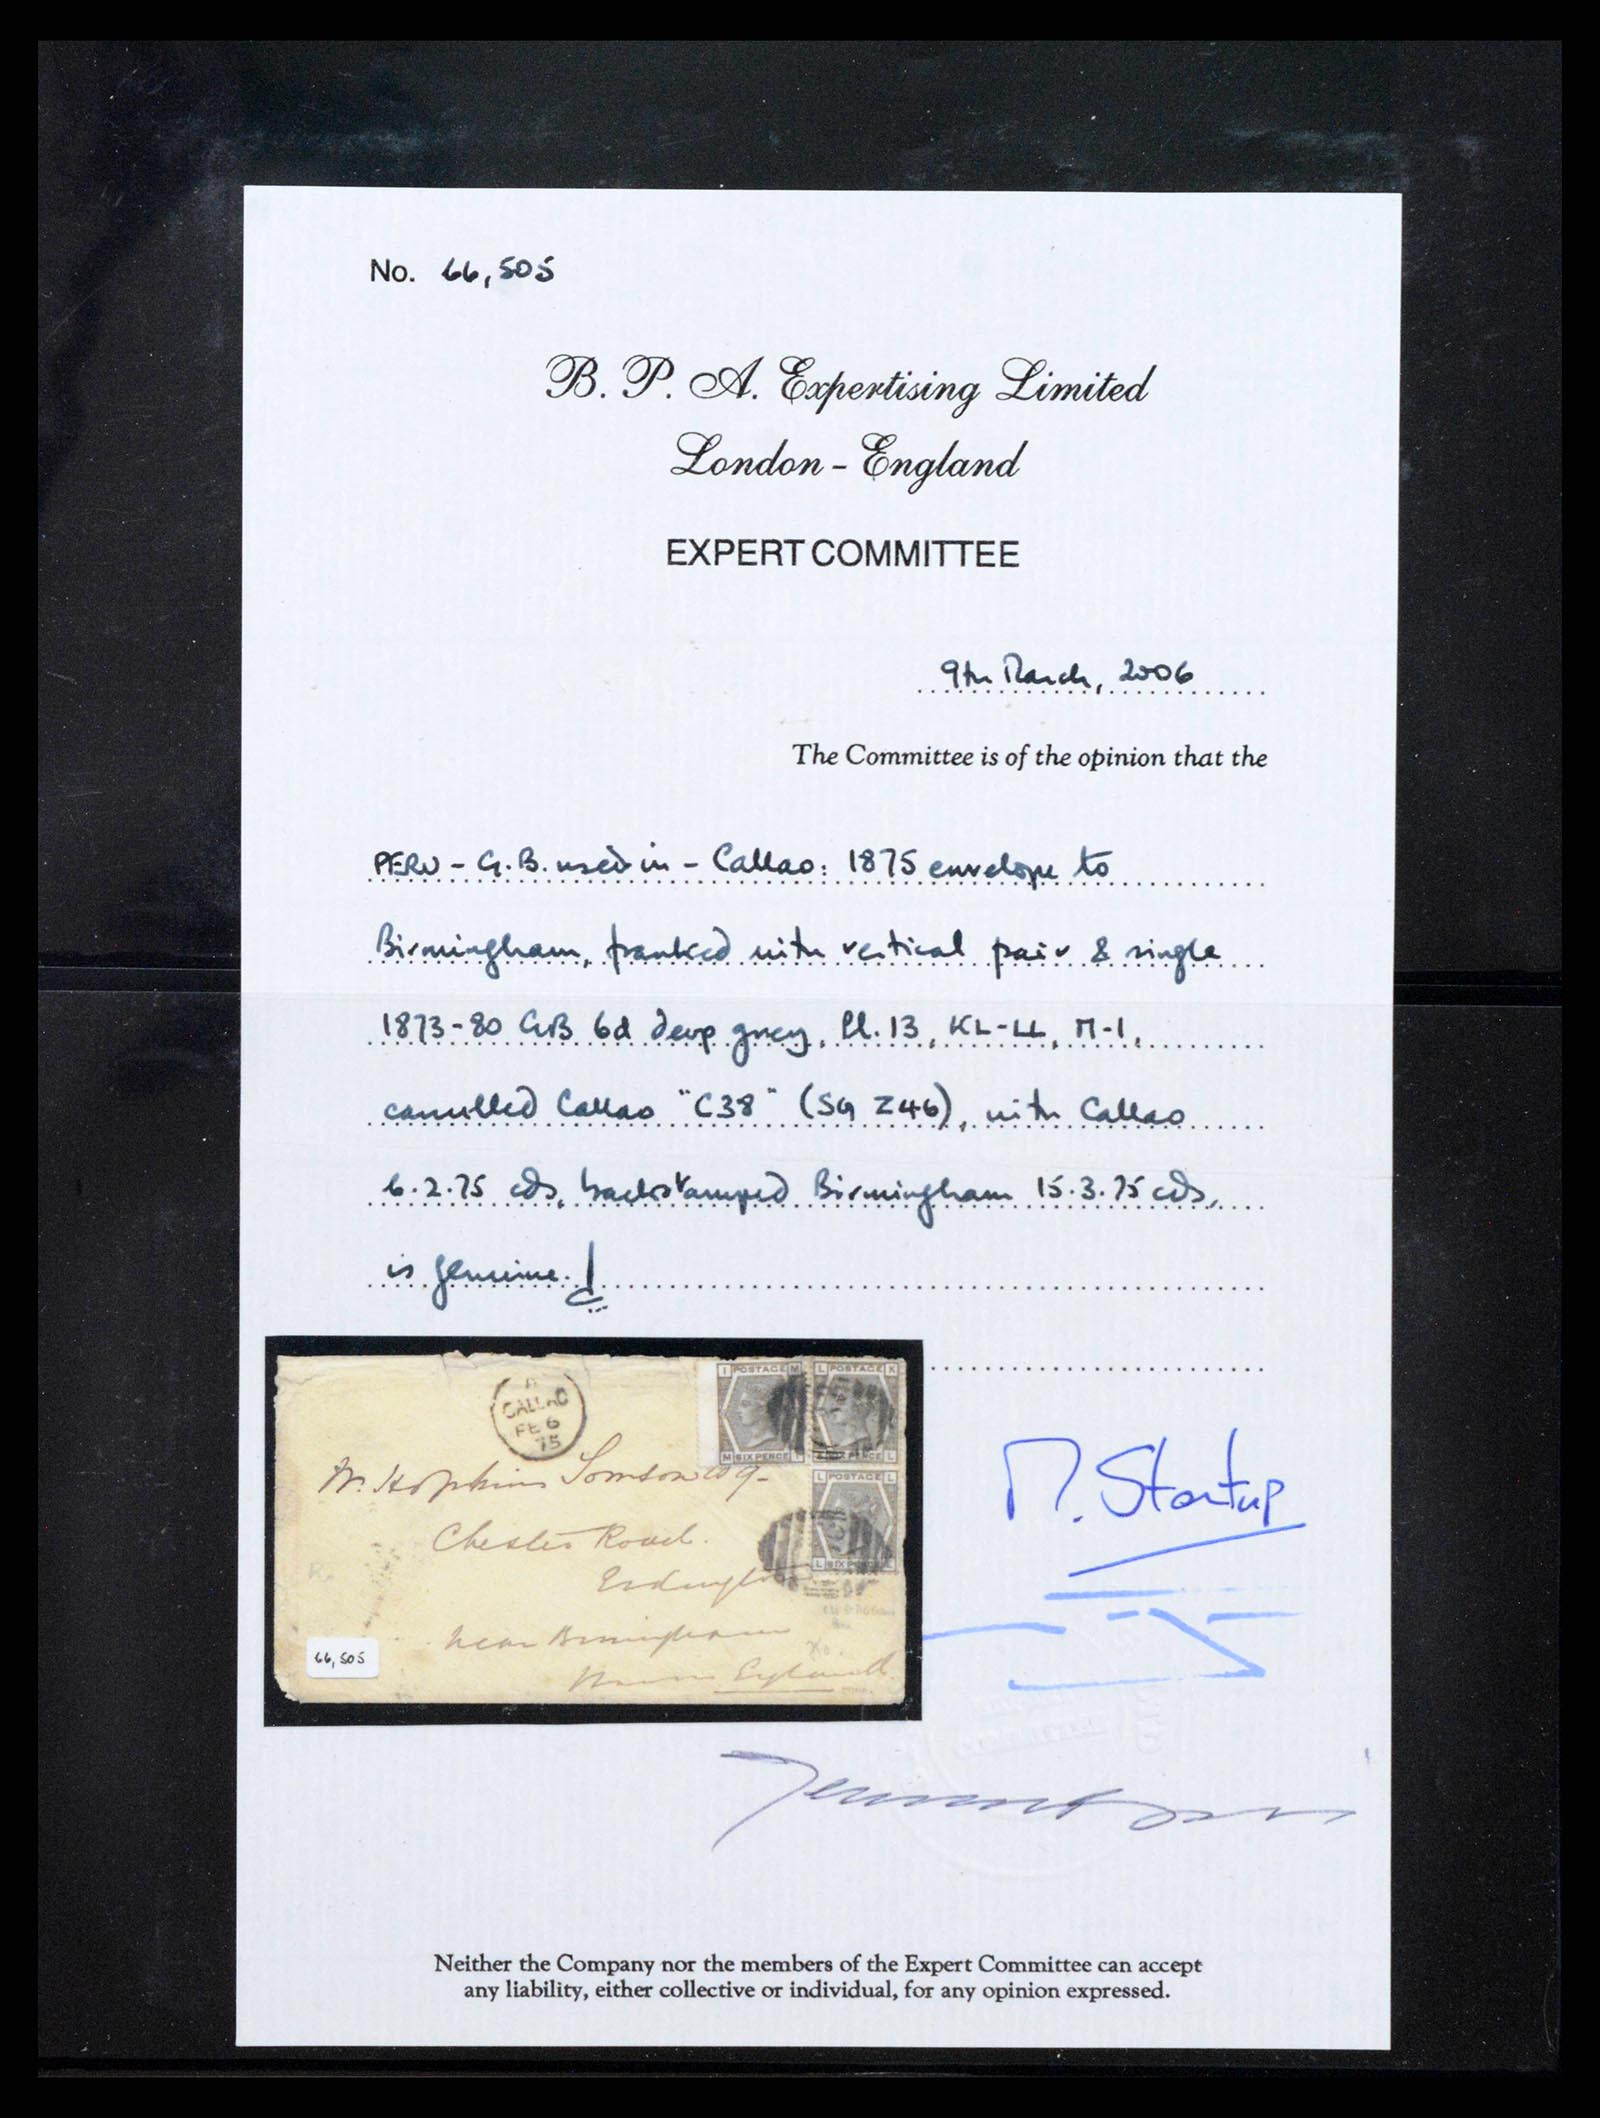 No. 66,505
B. P. A. Expertising Limited
London - England
EXPERT COMMITTEE
9th March, 2006
The Committee is of the opinion that the
PERU - G.B. used in - Callao: 1875 envelope to
Birmingham, franked with vertical pair & single
1873-80 GB 6d deep grey, Pl. 13, KL-LL, M-I,
cancelled Callao "C38" (SG Z46), with Callao
6.2.75 cds, backstamped Birmingham 15.3.75 cds,
is genuine.
I POSTAGE M
L POSTAGE K
CALLAO
FE 6
75
M SIX PENCE I
SIX PENCE L
Hopkins
L POSTAGE L
Chester Road.
L SIX PENCE L
near Birmingham
England
66,505
M. Startup
Neither the Company nor the members of the Expert Committee can accept
any liability, either collective or individual, for any opinion expressed.